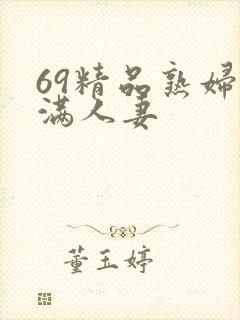 69精品熟婦
满人妻
董玉婷